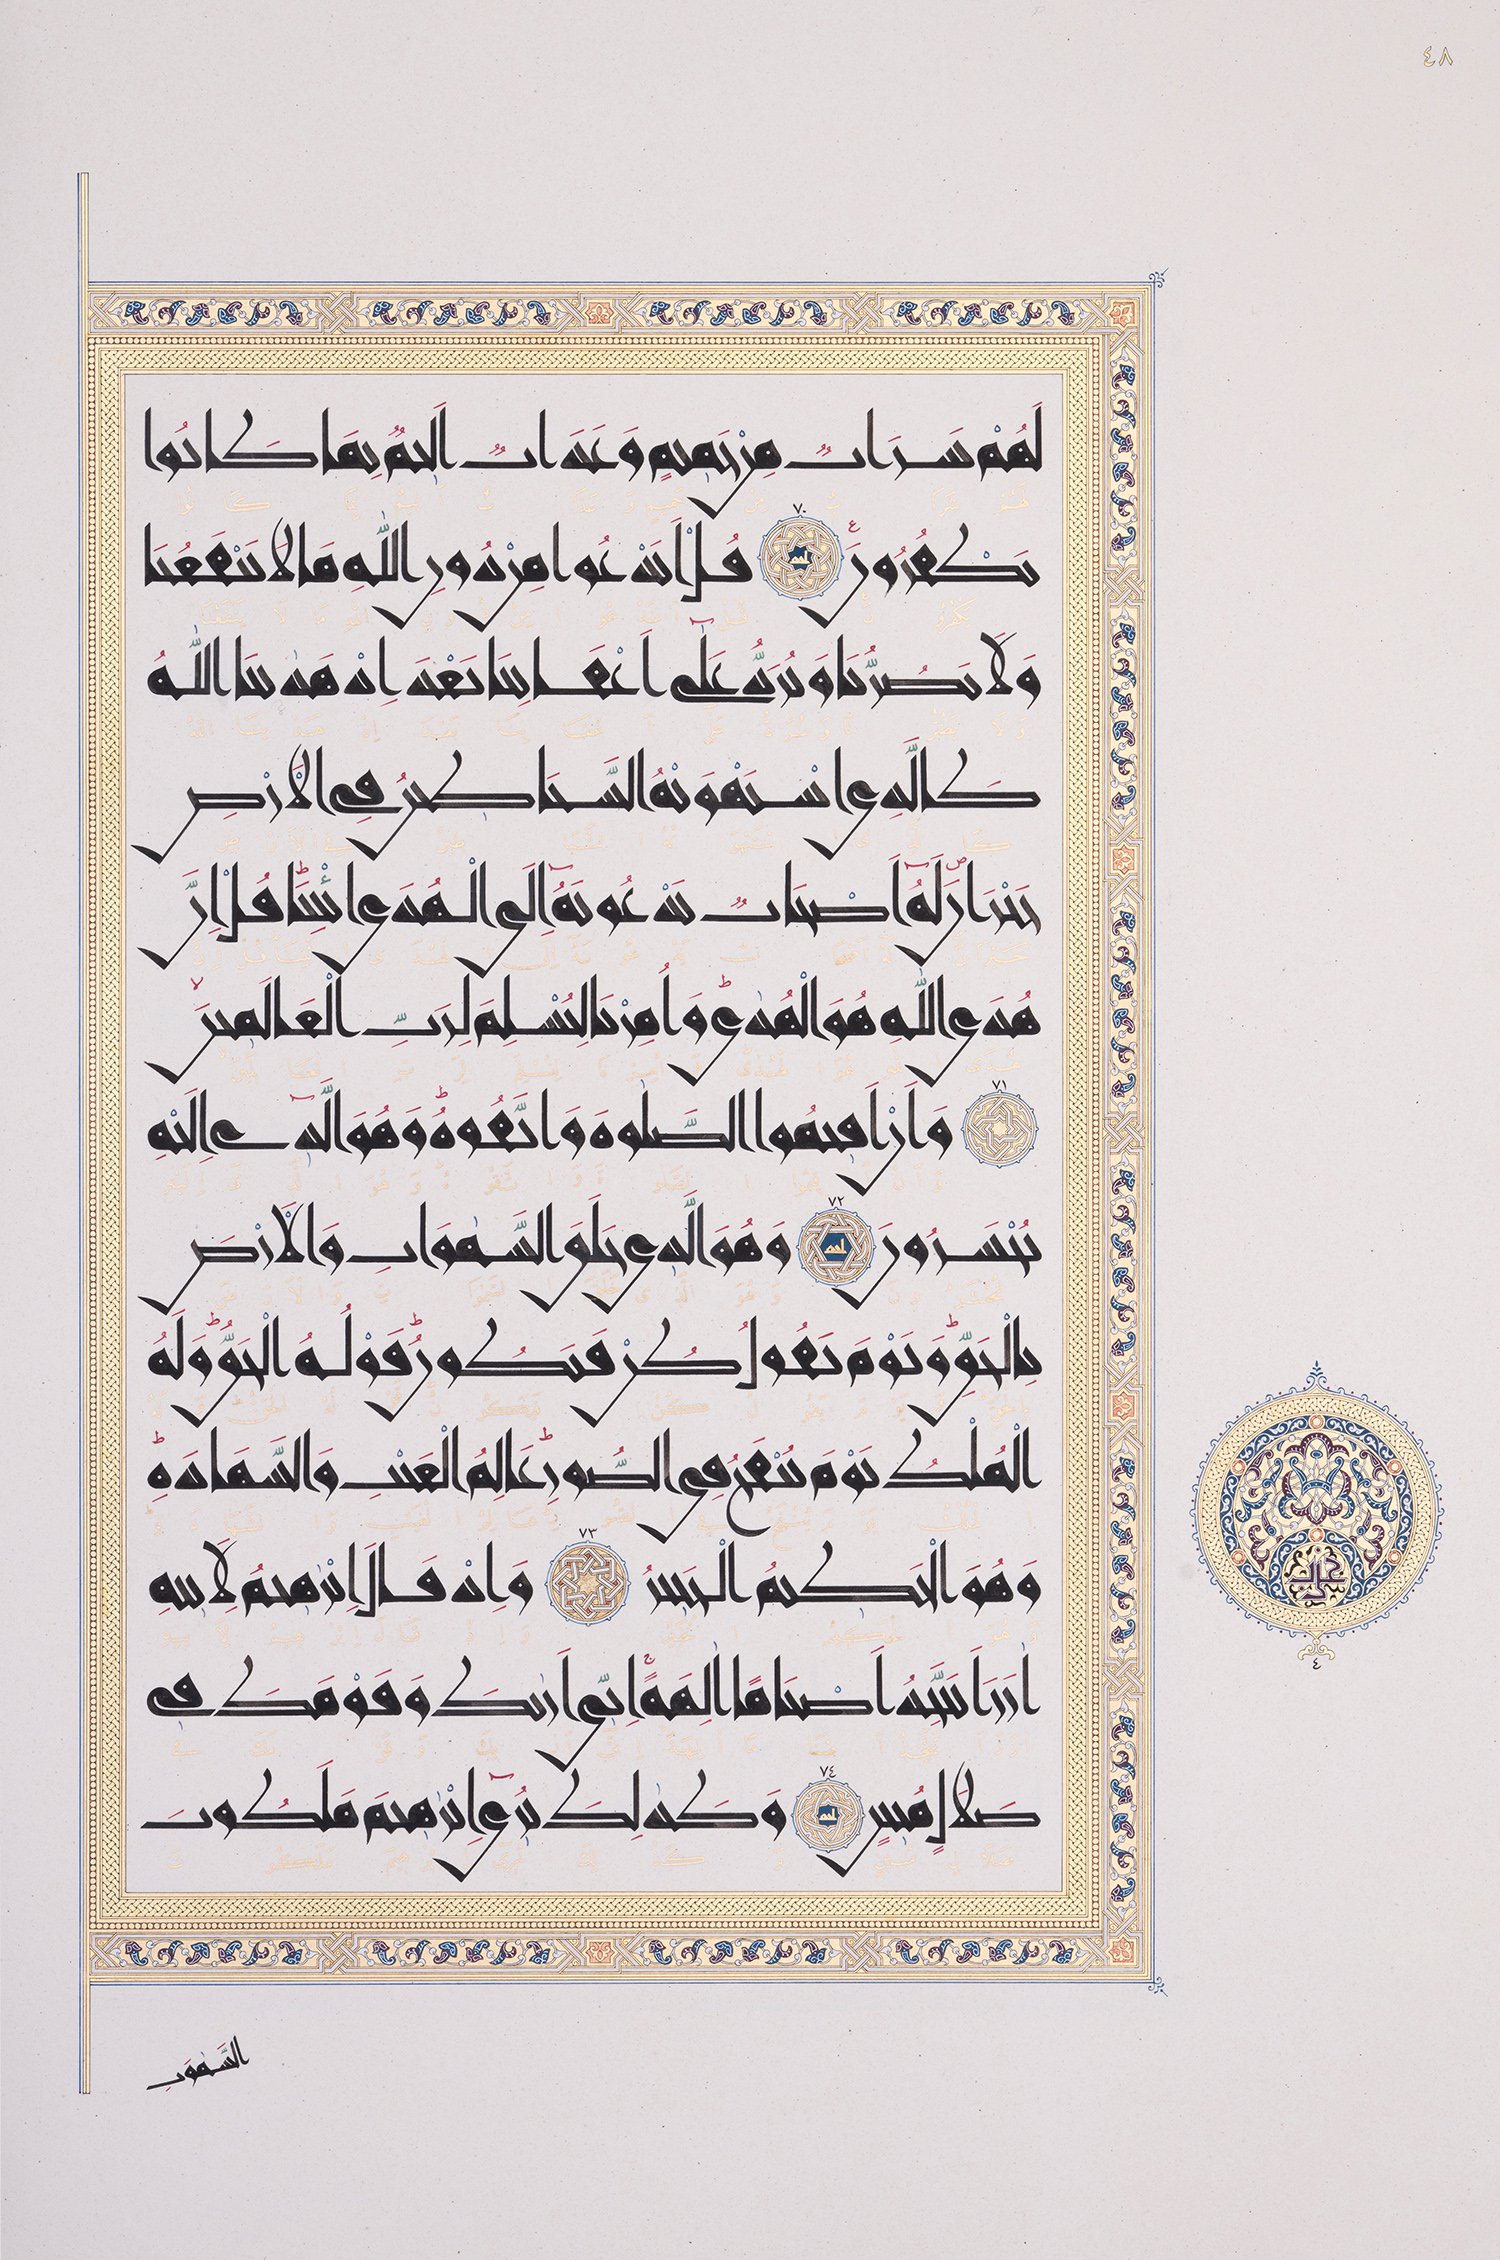 ٤٨
لَهُمْ شَرَابٌ مِنْ حَمِيمٍ وَعَذَابٌ أَلِيمٌ بِمَا كَانُوا
يَكْفُرُونَ ۧ ٧٠ قُلْ أَنَدْعُوا مِنْ دُونِ اللّٰهِ مَا لَا يَنْفَعُنَا
وَلَا يَضُرُّنَا وَنُرَدُّ عَلٰٓى أَعْقَابِنَا بَعْدَ إِذْ هَدٰينَا اللّٰهُ
كَالَّذِي اسْتَهْوَتْهُ الشَّيَاطِينُ فِي الْأَرْضِ
حَيْرَانَ ۖ لَهُٓ أَصْحَابٌ يَدْعُونَهُٓ إِلَى الْهُدَى ائْتِنَا ۗ قُلْ إِنَّ
هُدَى اللّٰهِ هُوَ الْهُدٰى ۗ وَأُمِرْنَا لِنُسْلِمَ لِرَبِّ الْعَالَمِينَ ۙ
٧١ وَأَنْ أَقِيمُوا الصَّلٰوةَ وَاتَّقُوهُ ۗ وَهُوَ الَّذِٓي إِلَيْهِ
تُحْشَرُونَ ٧٢ وَهُوَ الَّذِي خَلَقَ السَّمٰوَاتِ وَالْأَرْضَ
بِالْحَقِّ ۗ وَيَوْمَ يَقُولُ كُنْ فَيَكُونُ ۗ قَوْلُهُ الْحَقُّ ۗ وَلَهُ
الْمُلْكُ يَوْمَ يُنْفَخُ فِي الصُّورِ ۗ عَالِمُ الْغَيْبِ وَالشَّهَادَةِ ۗ
وَهُوَ الْحَكِيمُ الْخَبِيرُ ٧٣ وَإِذْ قَالَ إِبْرٰهِيمُ لِأَبِيهِ
اٰزَرَ أَتَتَّخِذُ أَصْنَامًا اٰلِهَةً ۚ إِنِّٓي أَرٰىكَ وَقَوْمَكَ فِي
ضَلَالٍ مُبِينٍ ٧٤ وَكَذٰلِكَ نُرِٓي إِبْرٰهِيمَ مَلَكُوتَ
السَّمٰوَاتِ
٤